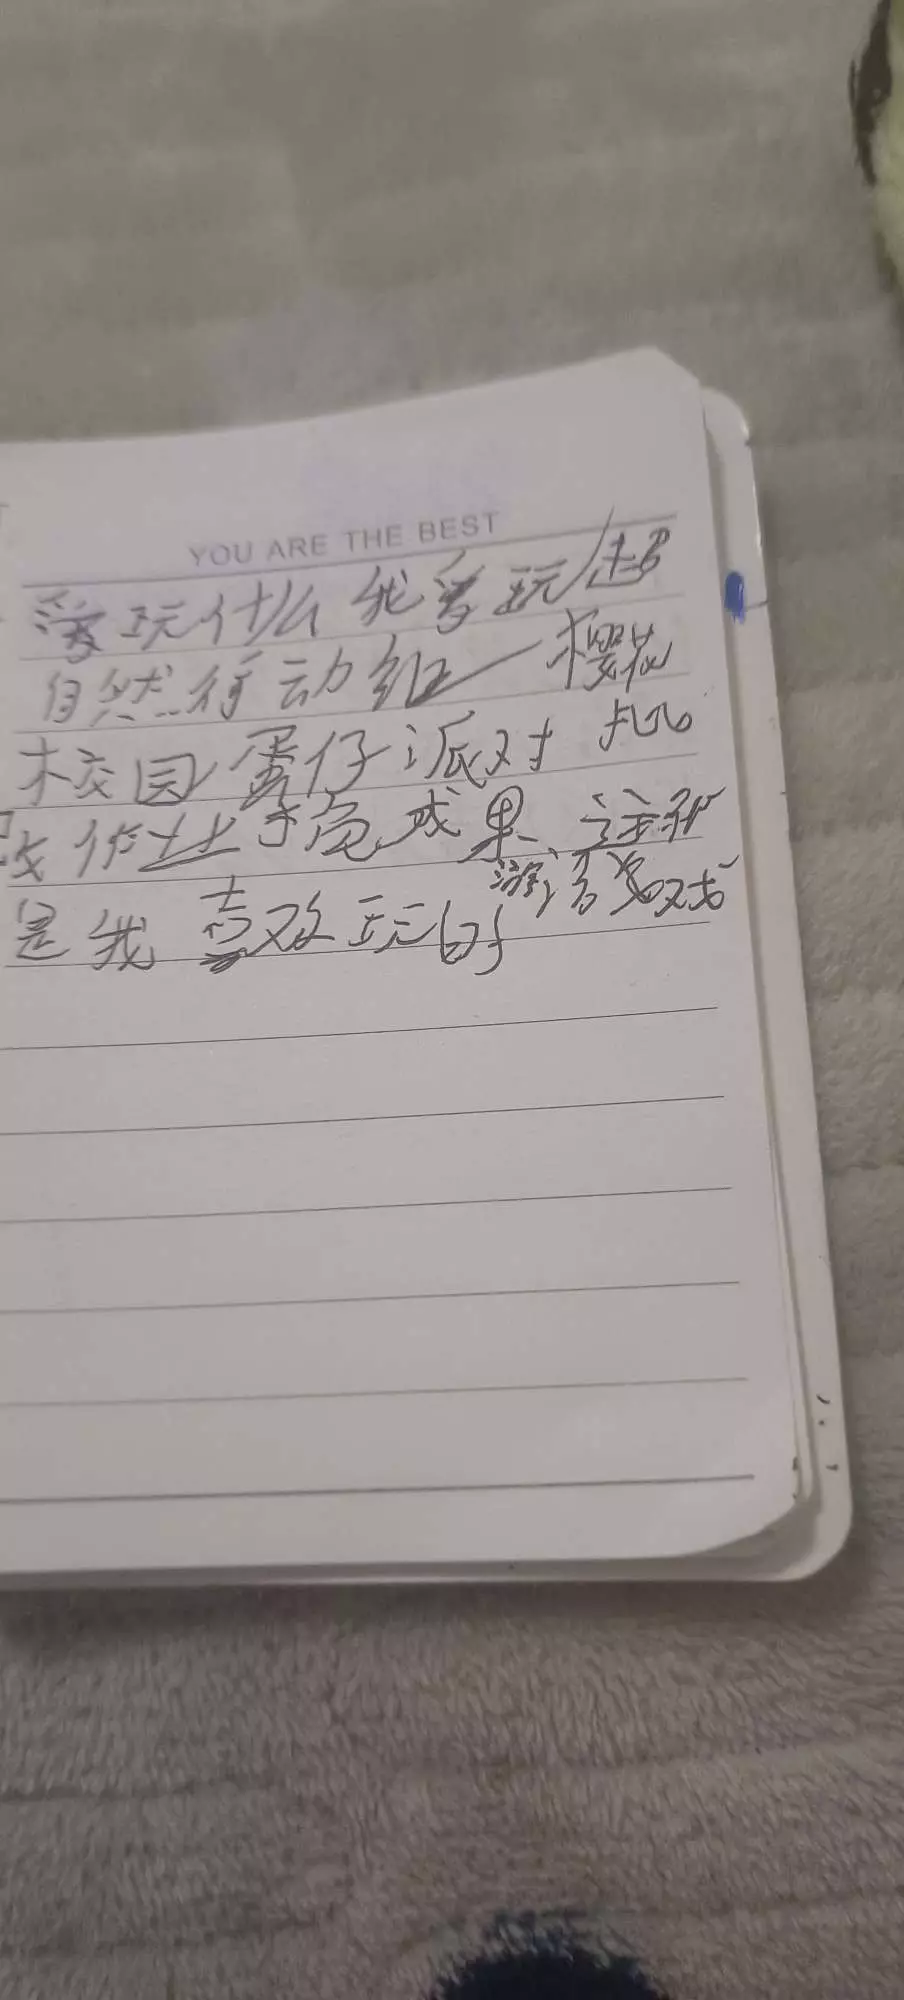 YOU ARE THE BEST
爱玩什么我爱玩超
自然行动组 樱花
校园蛋仔派对
作业 成果 这种
是我喜欢玩的游戏